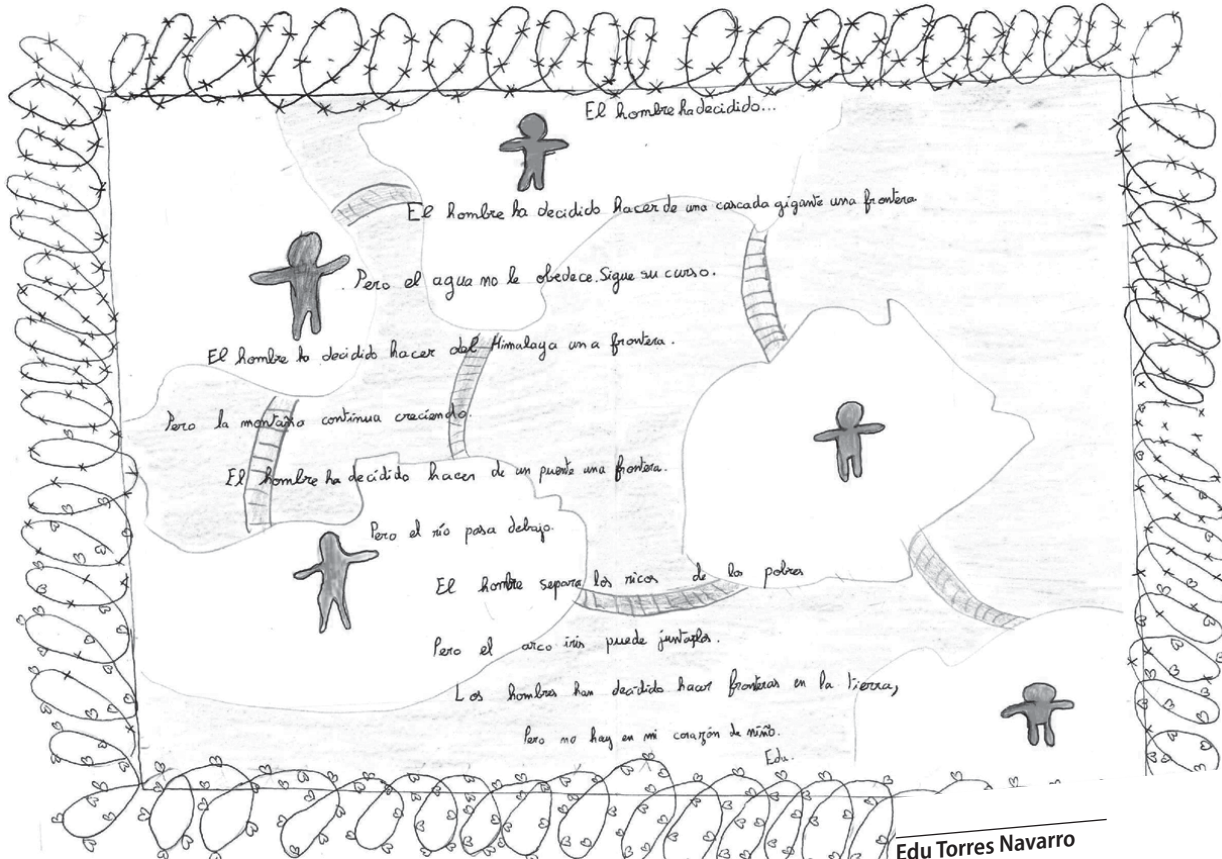 El hombre ha decidido...
El hombre ha decidido hacer de una cascada gigante una frontera
Pero el agua no le obedece. Sigue su curso.
El hombre ha decidido hacer del Himalaya una frontera.
Pero la montaña continua creciendo.
El hombre ha decidido hacer de un puente una frontera.
Pero el río pasa debajo.
El hombre separa los ricos de los pobres
Pero el arco iris puede juntarlos.
Los hombres han decidido hacer fronteras en la tierra,
Pero no hay en mi corazón de niño.
Edu.
Edu Torres Navarro